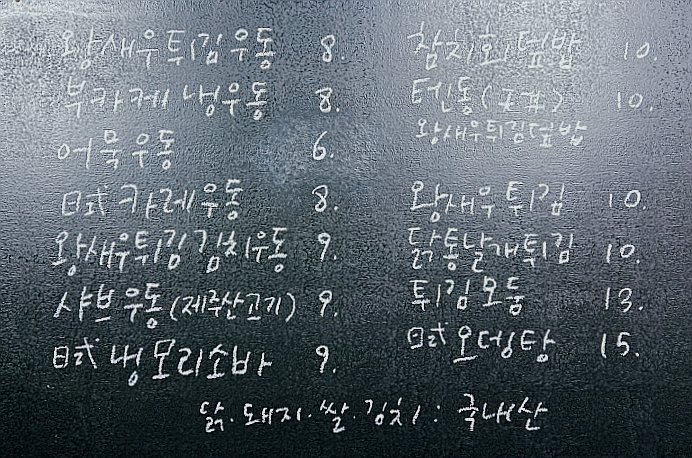 왕새우튀김우동 8.
부카케냉우동 8.
어묵우동 6.
日式카레우동 8.
왕새우튀김김치우동 9.
샤브우동(제주산고기) 9.
日式냉모리소바 9.
참치회덮밥 10.
텐동(天丼) 10.
왕새우튀김덮밥
왕새우튀김 10.
닭통날개튀김 10.
튀김모둠 13.
日式오뎅탕 15.
닭.돼지.쌀.김치:국내산